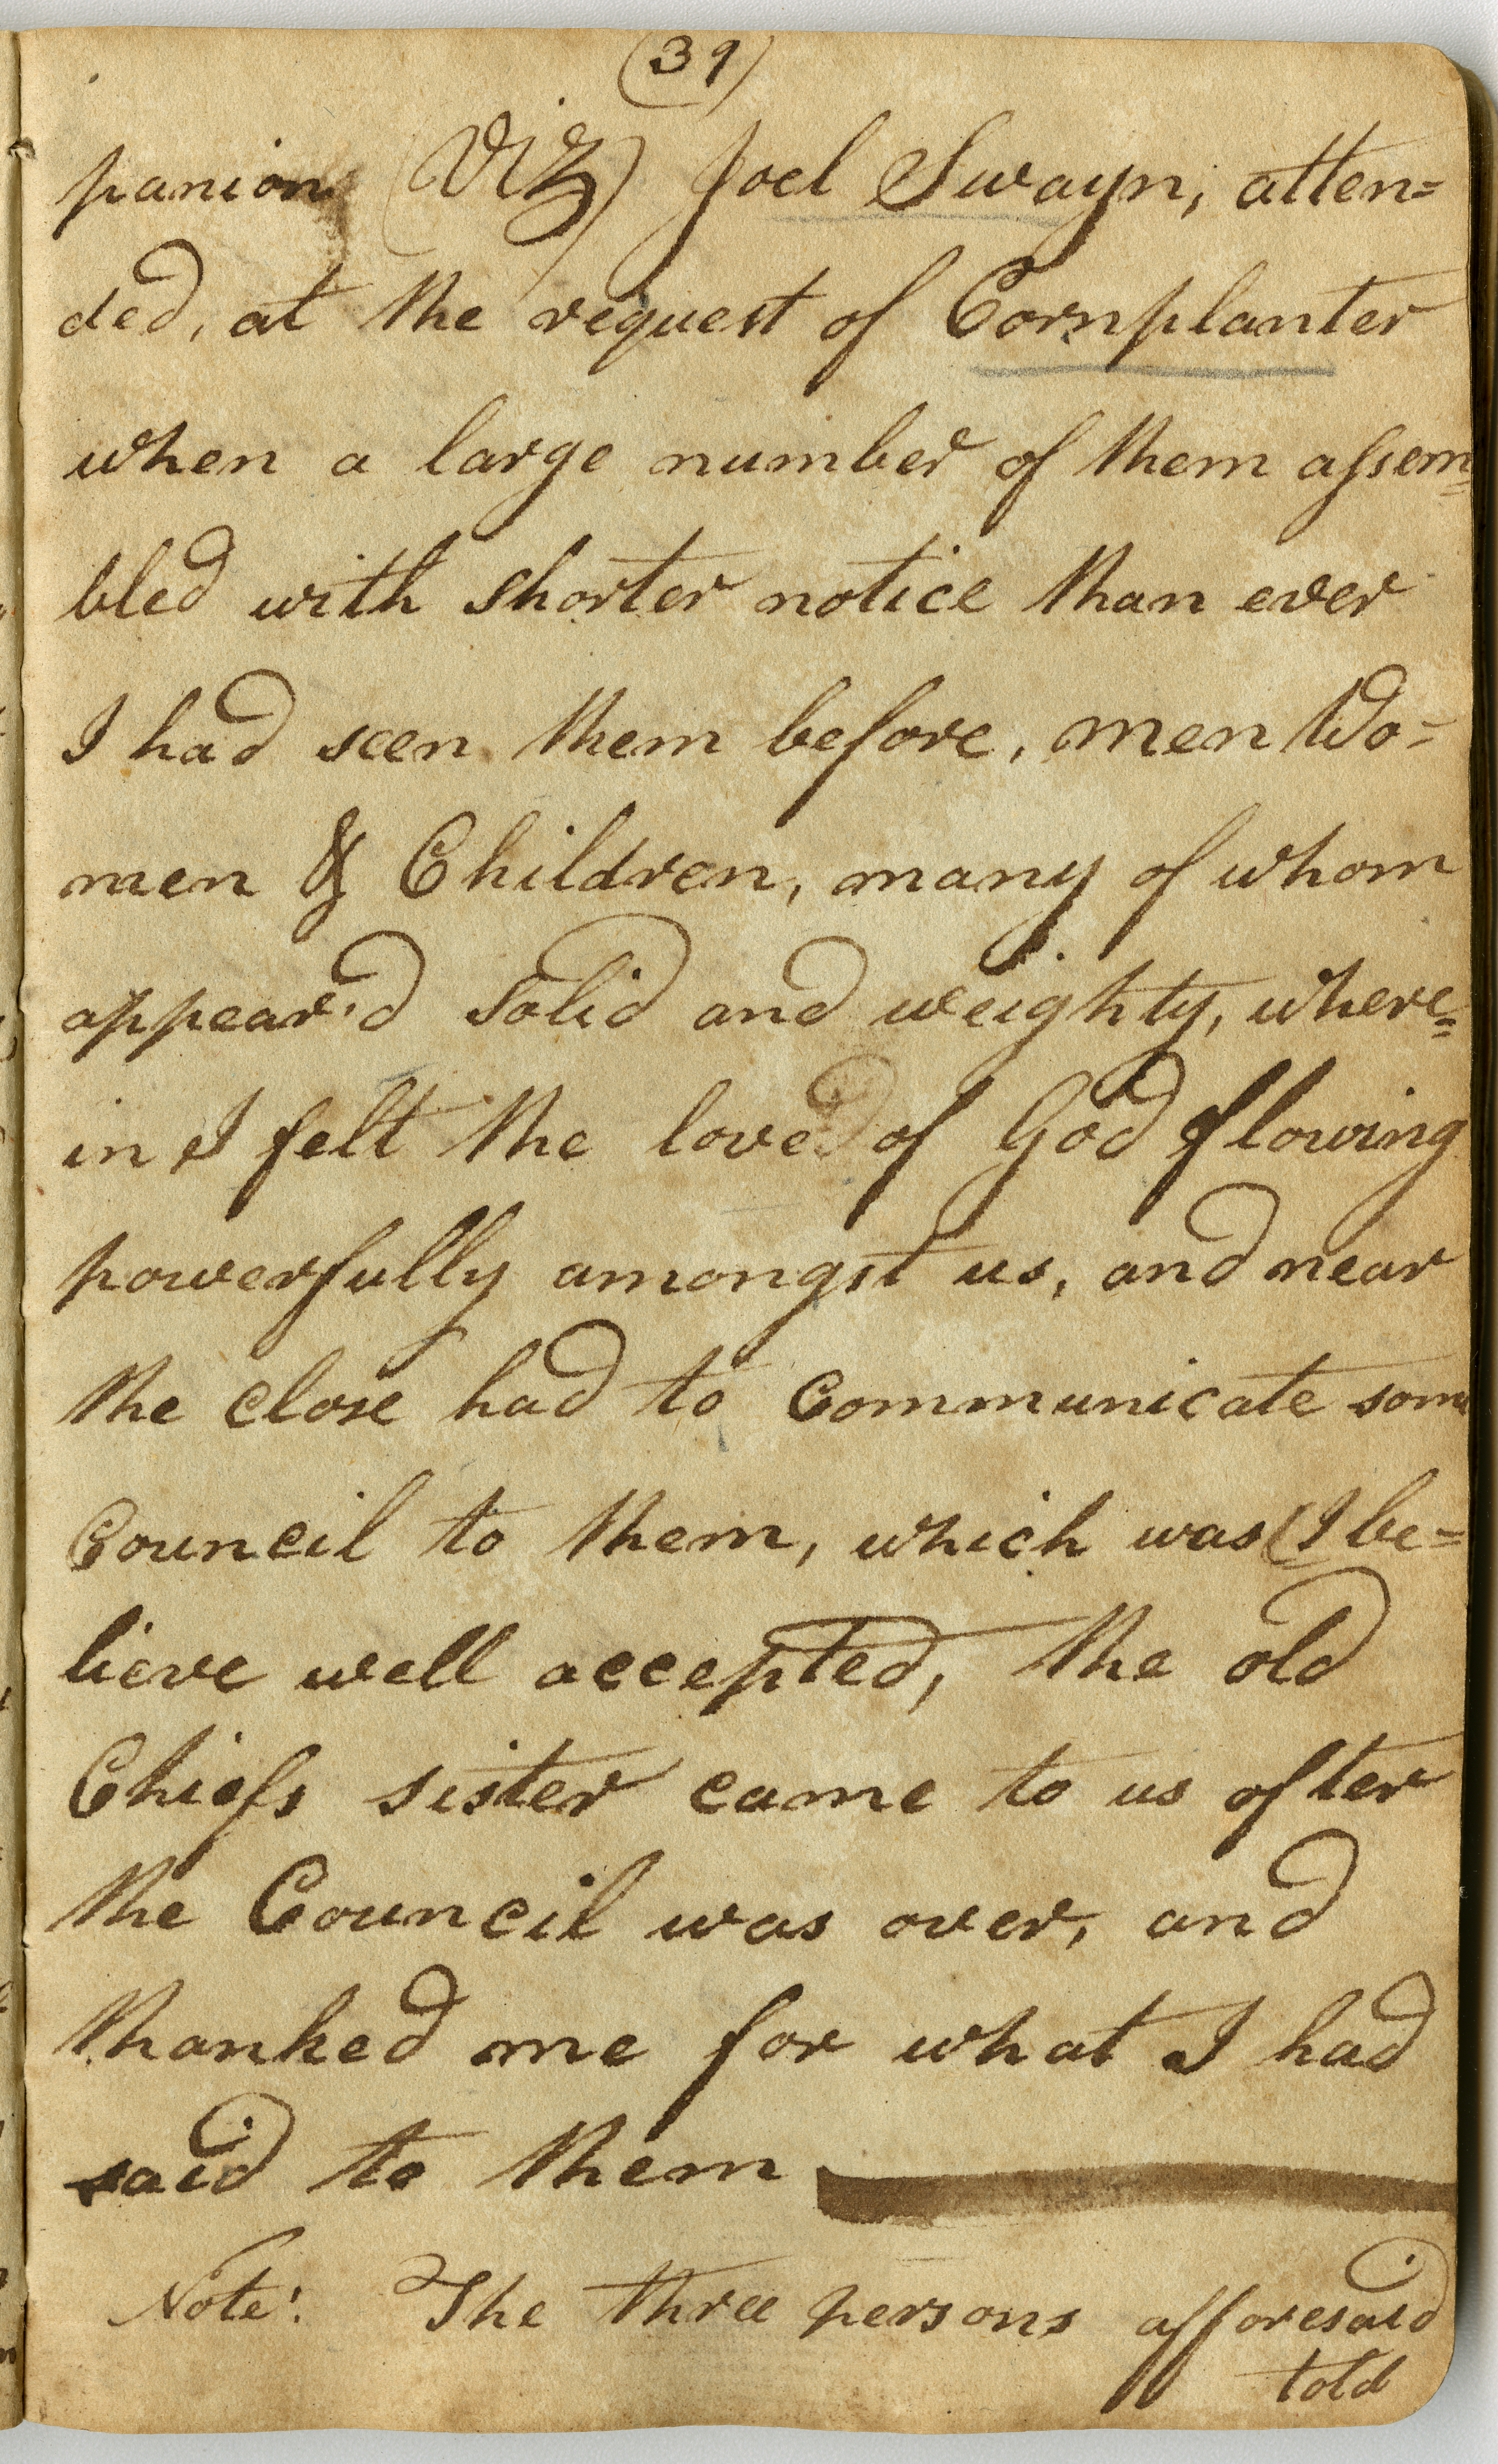 (39)
panion (Viz) Joel Swayn, atten=
ded, at the request of Cornplanter
when a large number of them assem=
bled with shorter notice than ever
I had seen them before, men Wo=
men & Children, many of whom
appear'd solid and weighty, where=
in I felt the love of God flowing
powerfully amongst us, and near
the close had to Communicate some
Council to them, which was (I be=
lieve well accepted, the old
Chiefs sister came to us after
the Council was over, and
thanked me for what I had
said to them
Note: The three persons afforesaid
told